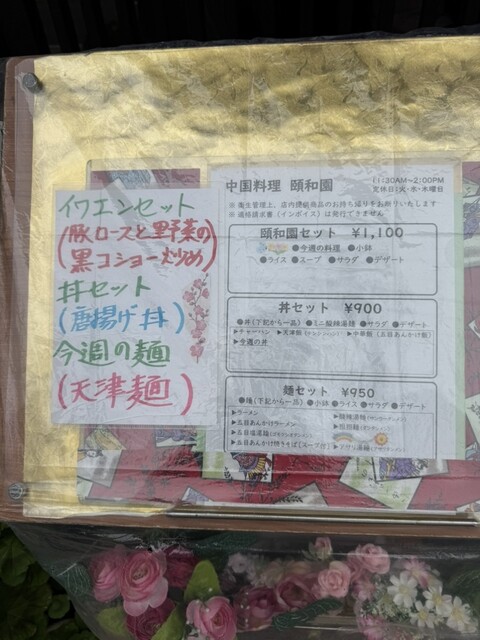 イワエンセット
(豚ロースと野菜の
黒コショー炒め)
丼セット
(唐揚げ丼)
今週の麺
(天津麺)
中国料理 頤和園
11:30AM~2:00PM
定休日:火・水・木曜日
※ 衛生管理上、店内提供商品のお持ち帰りをお断りいたします
※ 適格請求書(インボイス)は発行できません
頤和園セット ¥1,100
●今週の料理 ●小鉢
●ライス ●スープ ●サラダ ●デザート
丼セット ¥900
●丼(下記から一品) ●ミニ酸辣湯麺 ●サラダ ●デザート
▶チャーハン ▶天津飯 ▶中華飯(五目あんかけ飯)
▶今週の丼
麺セット ¥950
●麺(下記から一品) ●小鉢 ●ライス ●サラダ ●デザート
▶ラーメン ▶酸辣湯麺
▶五目あんかけラーメン ▶担担麺
▶五目塩湯麺
▶五目あんかけ焼きそば(スープ付) ▶アサリ湯麺